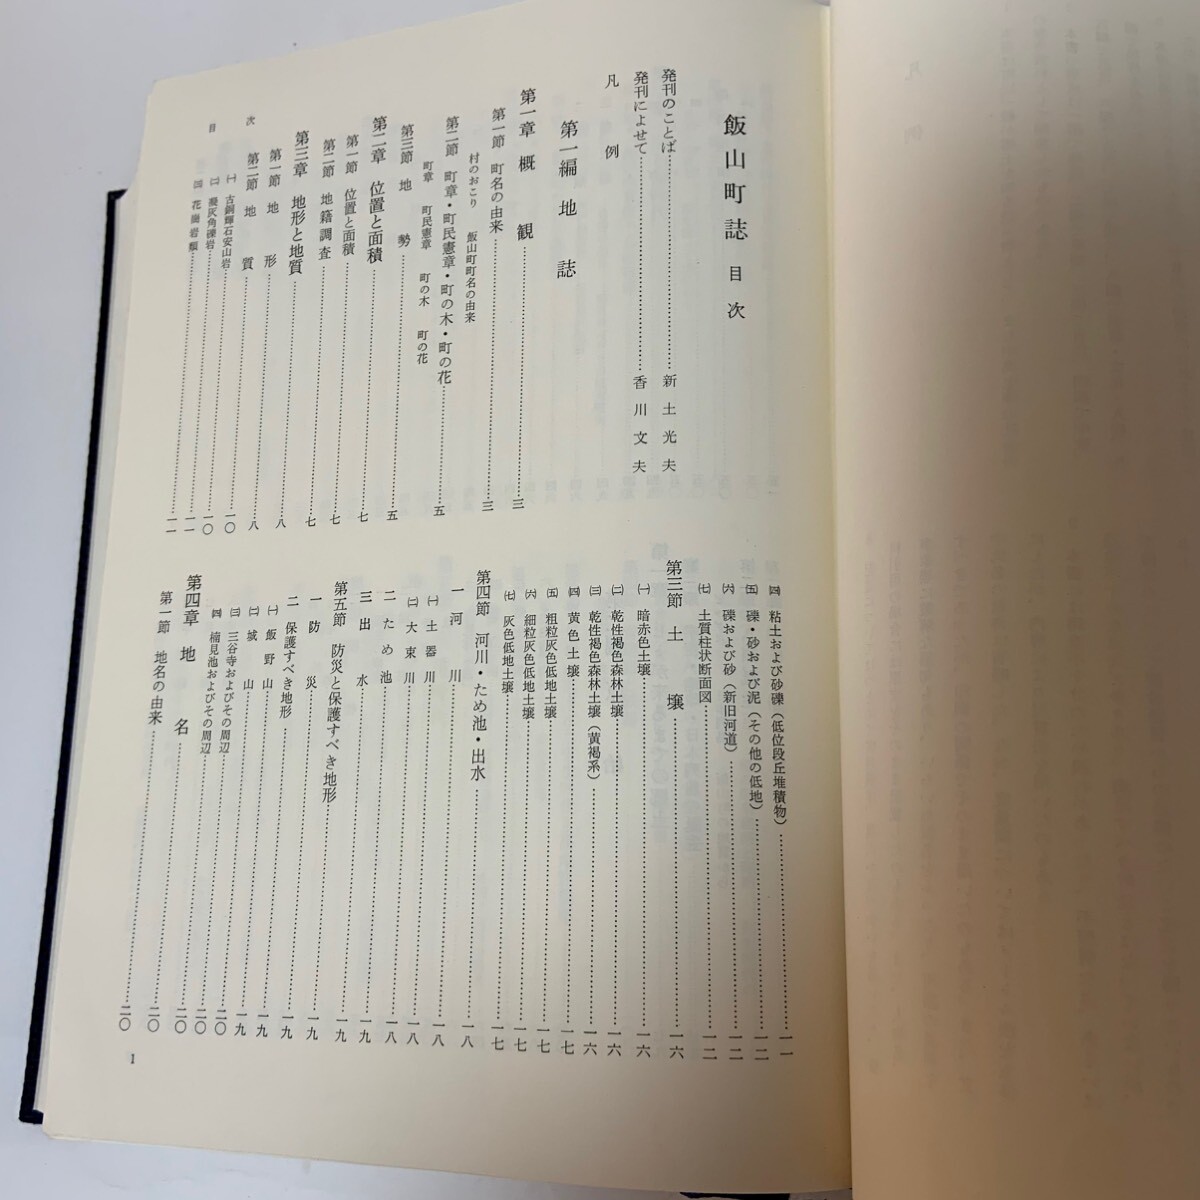 飯山町誌 目次
発刊のことば……新土光夫
発刊によせて……香川文夫
凡例
第一編 地誌
第一章 概観……三
第一節 町名の由来……三
村のおこり 飯山町町名の由来
第二節 町章・町民憲章・町の木・町の花……五
町章 町民憲章 町の木 町の花
第三節 地勢……五
第二章 位置と面積……七
第一節 位置と面積……七
第二節 地籍調査……七
第三章 地形と地質……八
第一節 地形……八
第二節 地質……
㈠ 古銅輝石安山岩……一〇
㈡ 凝灰角礫岩……一〇
㈢ 花崗岩類……一一
㈣ 粘土および砂礫(低位段丘堆積物)……一一
㈤ 礫・砂および泥(その他の低地)……一二
㈥ 礫および砂(新旧河道)……一二
㈦ 土質柱状断面図……一二
第三節 土壌……一六
㈠ 暗赤色土壌……一六
㈡ 乾性褐色森林土壌……一六
㈢ 乾性褐色森林土壌(黄褐系)……一六
㈣ 黄色土壌……一七
㈤ 粗粒灰色低地土壌……一七
㈥ 細粒灰色低地土壌……一七
㈦ 灰色低地土壌……一七
第四節 河川・ため池・出水……一八
一 河川……一八
㈠ 土器川……一八
㈡ 大束川……一八
二 ため池……一八
三 出水……一九
第五節 防災と保護すべき地形……一九
一 防災……一九
二 保護すべき地形……一九
㈠ 飯野山……一九
㈡ 城山……一九
㈢ 三谷寺およびその周辺……二〇
㈣ 楠見池およびその周辺……二〇
第四章 地名……二〇
第一節 地名の由来……二〇
目次
1